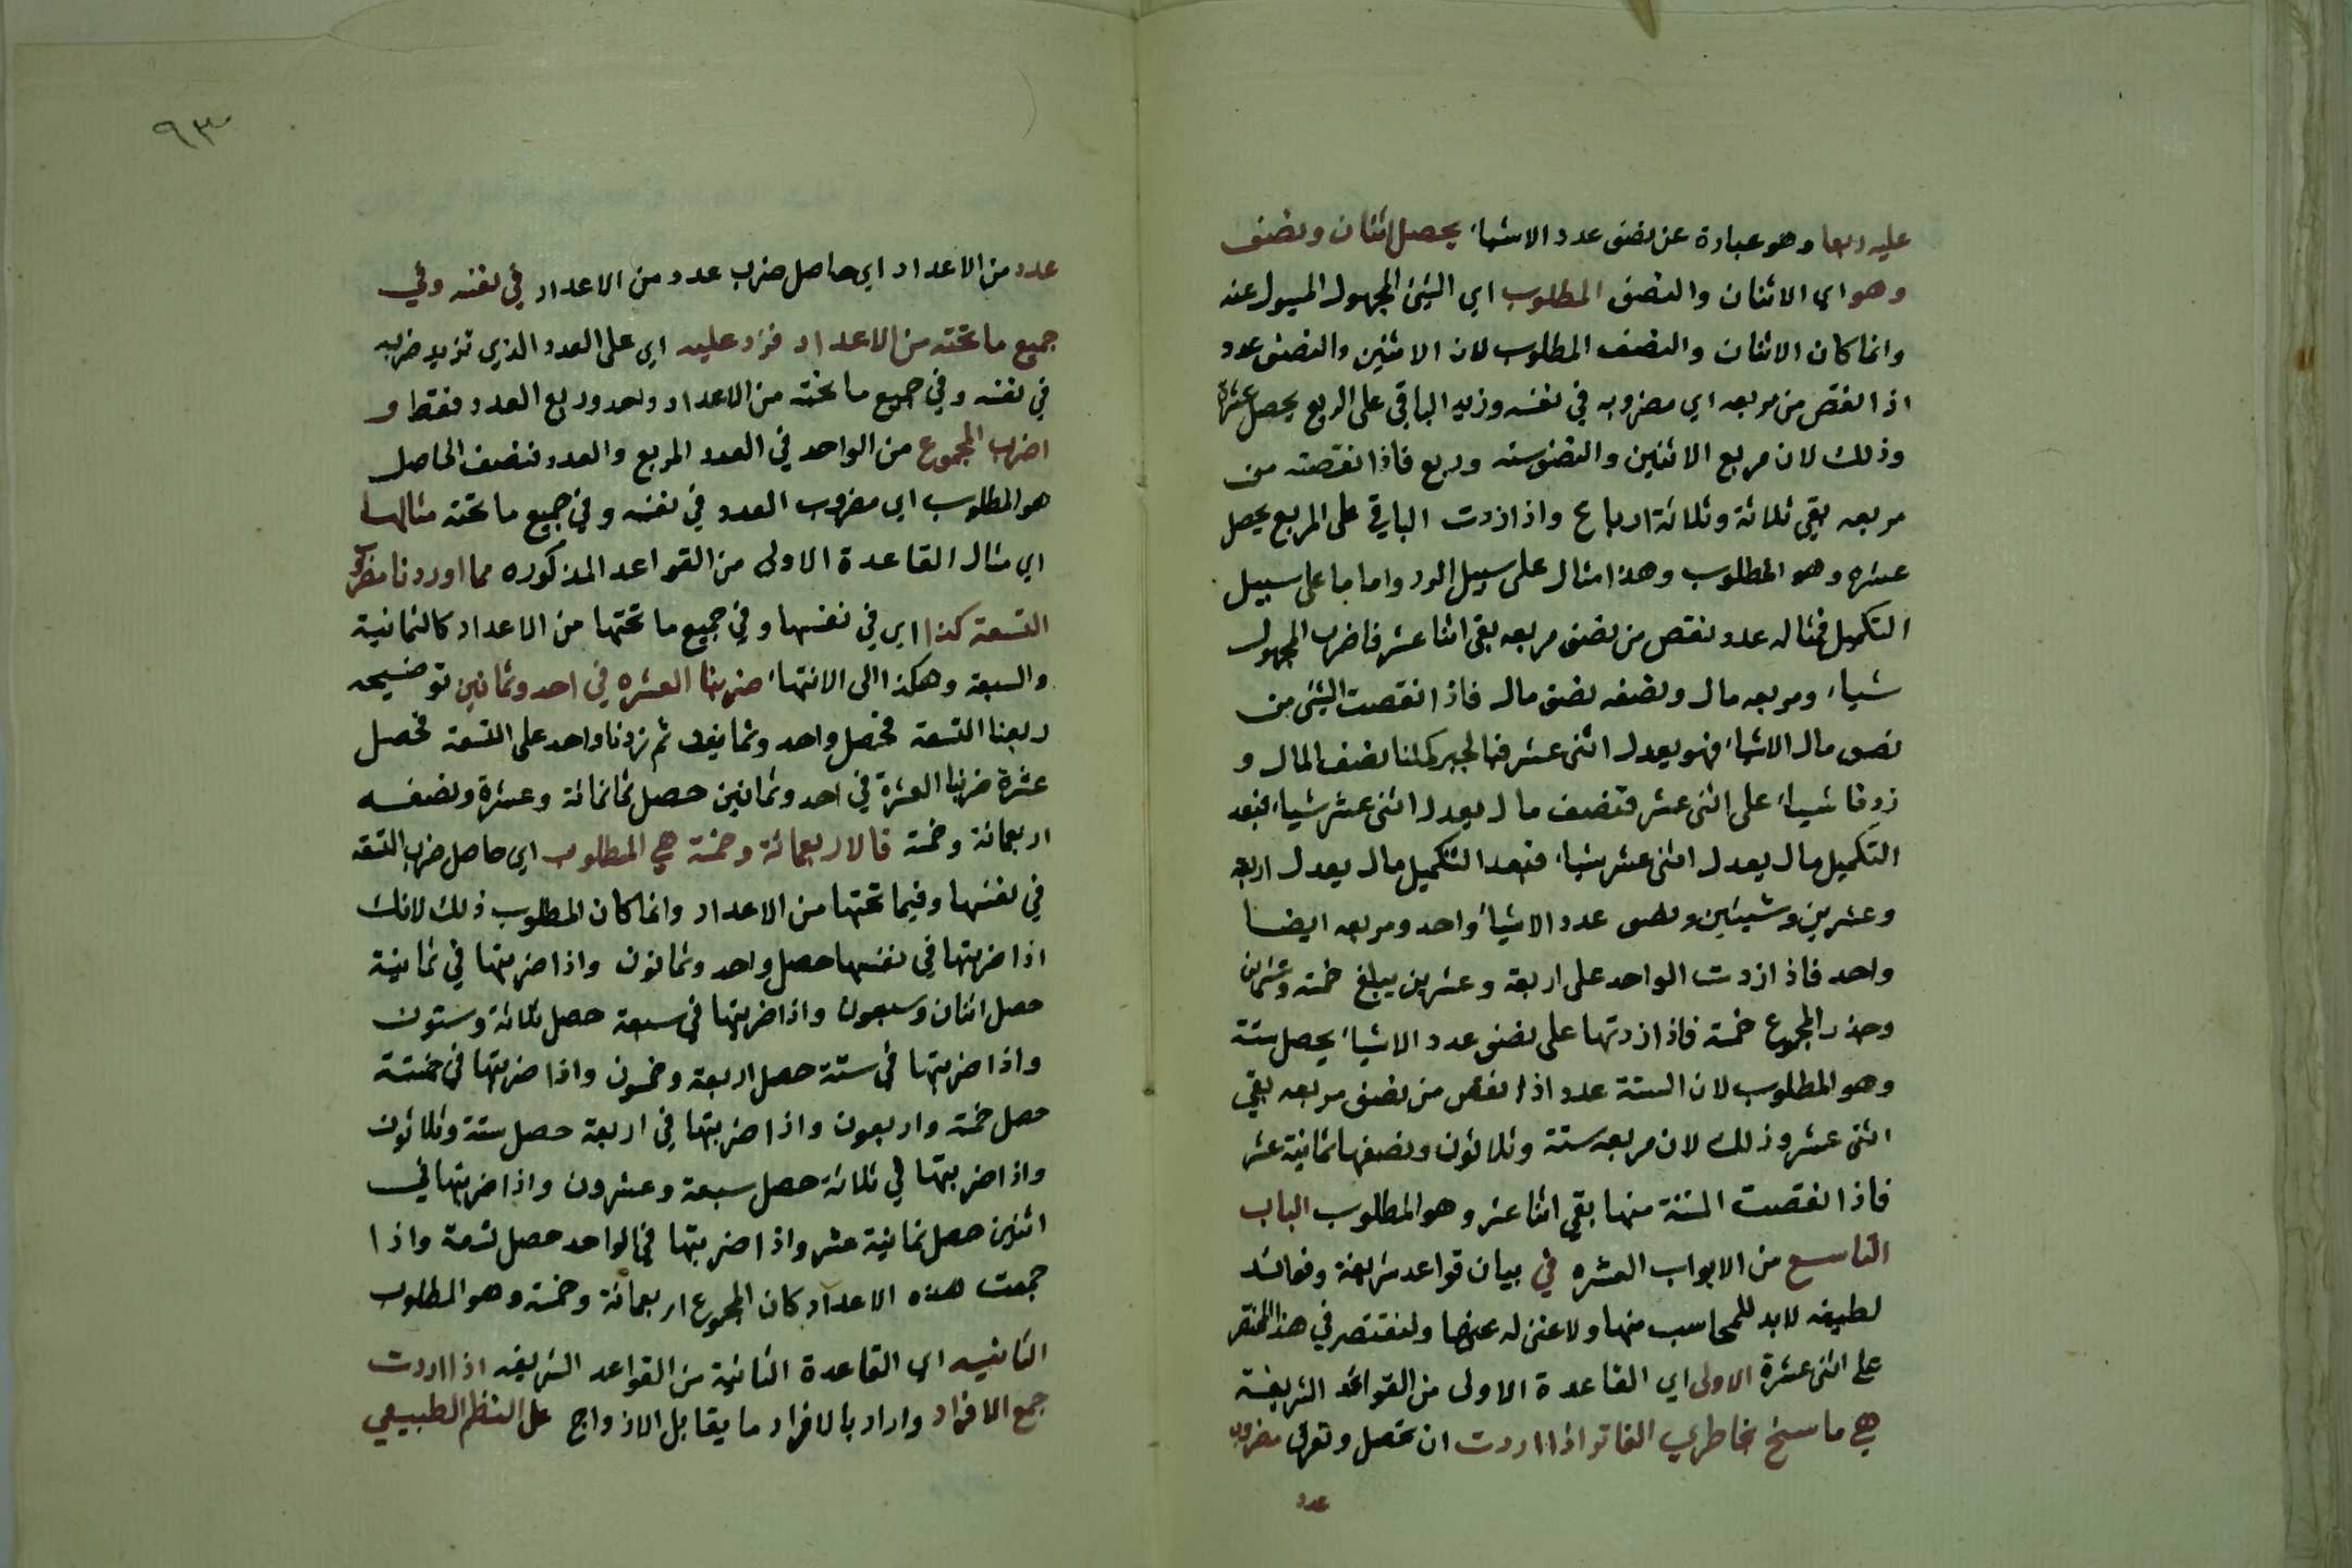 عليه ربعا وهو عبارة عن نصف عدد الاشياء يحصل اثنان ونصف
وهو اي الاثنان والنصف المطلوب اي الشئ المجهول المسول عنه
وانما كان الاثنان والنصف المطلوب لان الاثنين والنصف عدد
اذا نقص من مربعه اي مضروبه في نفسه وزيد الباقي على الربع يحصل عشرة
وذلك لان مربع الاثنين والنصف سته وربع فاذا نقصته من
مربعه بقي ثلاثة وثلاثة ارباع واذا زدت الباقي على المربع يحصل
عشره وهو المطلوب وهذا مثال على سبيل الرد واما ما على سبيل
التكميل فمثاله عدد نقص من نصف مربعه بقي اثنا عشر فاضرب المجهول
شياء ومربعه مال ونصفه نصف مال فاذا نقصت الشئ من
نصف مال الاشياء فهو يعدل اثنى عشر فبالجبر كملنا نصف المال و
زدنا شياء على اثنى عشر فنصف مال يعدل اثنى عشر شياء فبعد
التكميل مال يعدل اثنى عشر شياء فبعد التكميل مال يعدل اربعه
وعشرين وشيئين ونصف عدد الاشياء واحد ومربعه ايضا
واحد فاذا زدت الواحد على اربعة وعشرين يبلغ خمسة وعشرين
وجذر المجموع خمسة فاذا زدتها على نصف عدد الاشياء يحصل ستة
وهو المطلوب لان الستة عدد اذا نقص من نصف مربعه بقي
اثنى عشر وذلك لان مربعه ستة وثلاثون ونصفها ثمانية عشر
فاذا نقصت الستة منها بقي اثنا عشر وهو المطلوب الباب
التاسع من الابواب العشره في بيان قواعد شريفة وفوائد
لطيفه لابد للمحاسب منها ولا غنى له عنها ولنقتصر في هذا المختصر
على اثنى عشرة الاولى اي القاعدة الاولى من القواعد الشريفة
هي ما سنح بخاطري الفاتر اذا اردت ان تحصل وتعرف مضروب
عدد
٩٣
عدد من الاعداد اي حاصل ضرب عدد من الاعداد في نفسه وفي
جميع ما تحته من الاعداد فزد عليه اي على العدد الذي تريد ضربه
في نفسه وفي جميع ما تحته من الاعداد واحد وربع العدد فقط و
اضرب المجموع من الواحد في العدد المربع والعدد فنصف الحاصل
هو المطلوب اي مضروب العدد في نفسه وفي جميع ما تحته مثالها
اي مثال القاعدة الاولى من القواعد المذكوره مما اوردنا مضروب
التسعة كذا اي في نفسها وفي جميع ما تحتها من الاعداد كالثمانية
والسبعة وهكذا الى الانتهاء ضربنا العشره في احد وثمانين توضيحه
ربعنا التسعة فحصل واحد وثمانون ثم زدنا واحد على التسعة فحصل
عشرة ضربنا العشرة في احد وثمانين حصل ثمانمائة وعشرة ونصفه
اربعمائة وخمسة فالاربعمائة وخمسة هي المطلوب اي حاصل ضرب التسعة
في نفسها وفيما تحتها من الاعداد وانما كان المطلوب ذلك لانك
اذا ضربتها في نفسها حصل واحد وثمانون واذا ضربتها في ثمانية
حصل اثنان وسبعون واذا ضربتها في سبعة حصل ثلاثة وستون
واذا ضربتها في ستة حصل اربعة وخمسون واذا ضربتها في خمسة
حصل خمسة واربعون واذا ضربتها في اربعة حصل ستة وثلاثون
واذا ضربتها في ثلاثة حصل سبعة وعشرون واذا ضربتها في
اثنين حصل ثمانية عشر واذا ضربتها في الواحد حصل تسعة واذا
جمعت هذه الاعداد كان المجموع اربعمائة وخمسة وهو المطلوب
الثانيه اي القاعدة الثانية من القواعد الشريفه اذا اردت
جمع الافراد واراد بالافراد ما يقابل الازواج على النظم الطبيعي